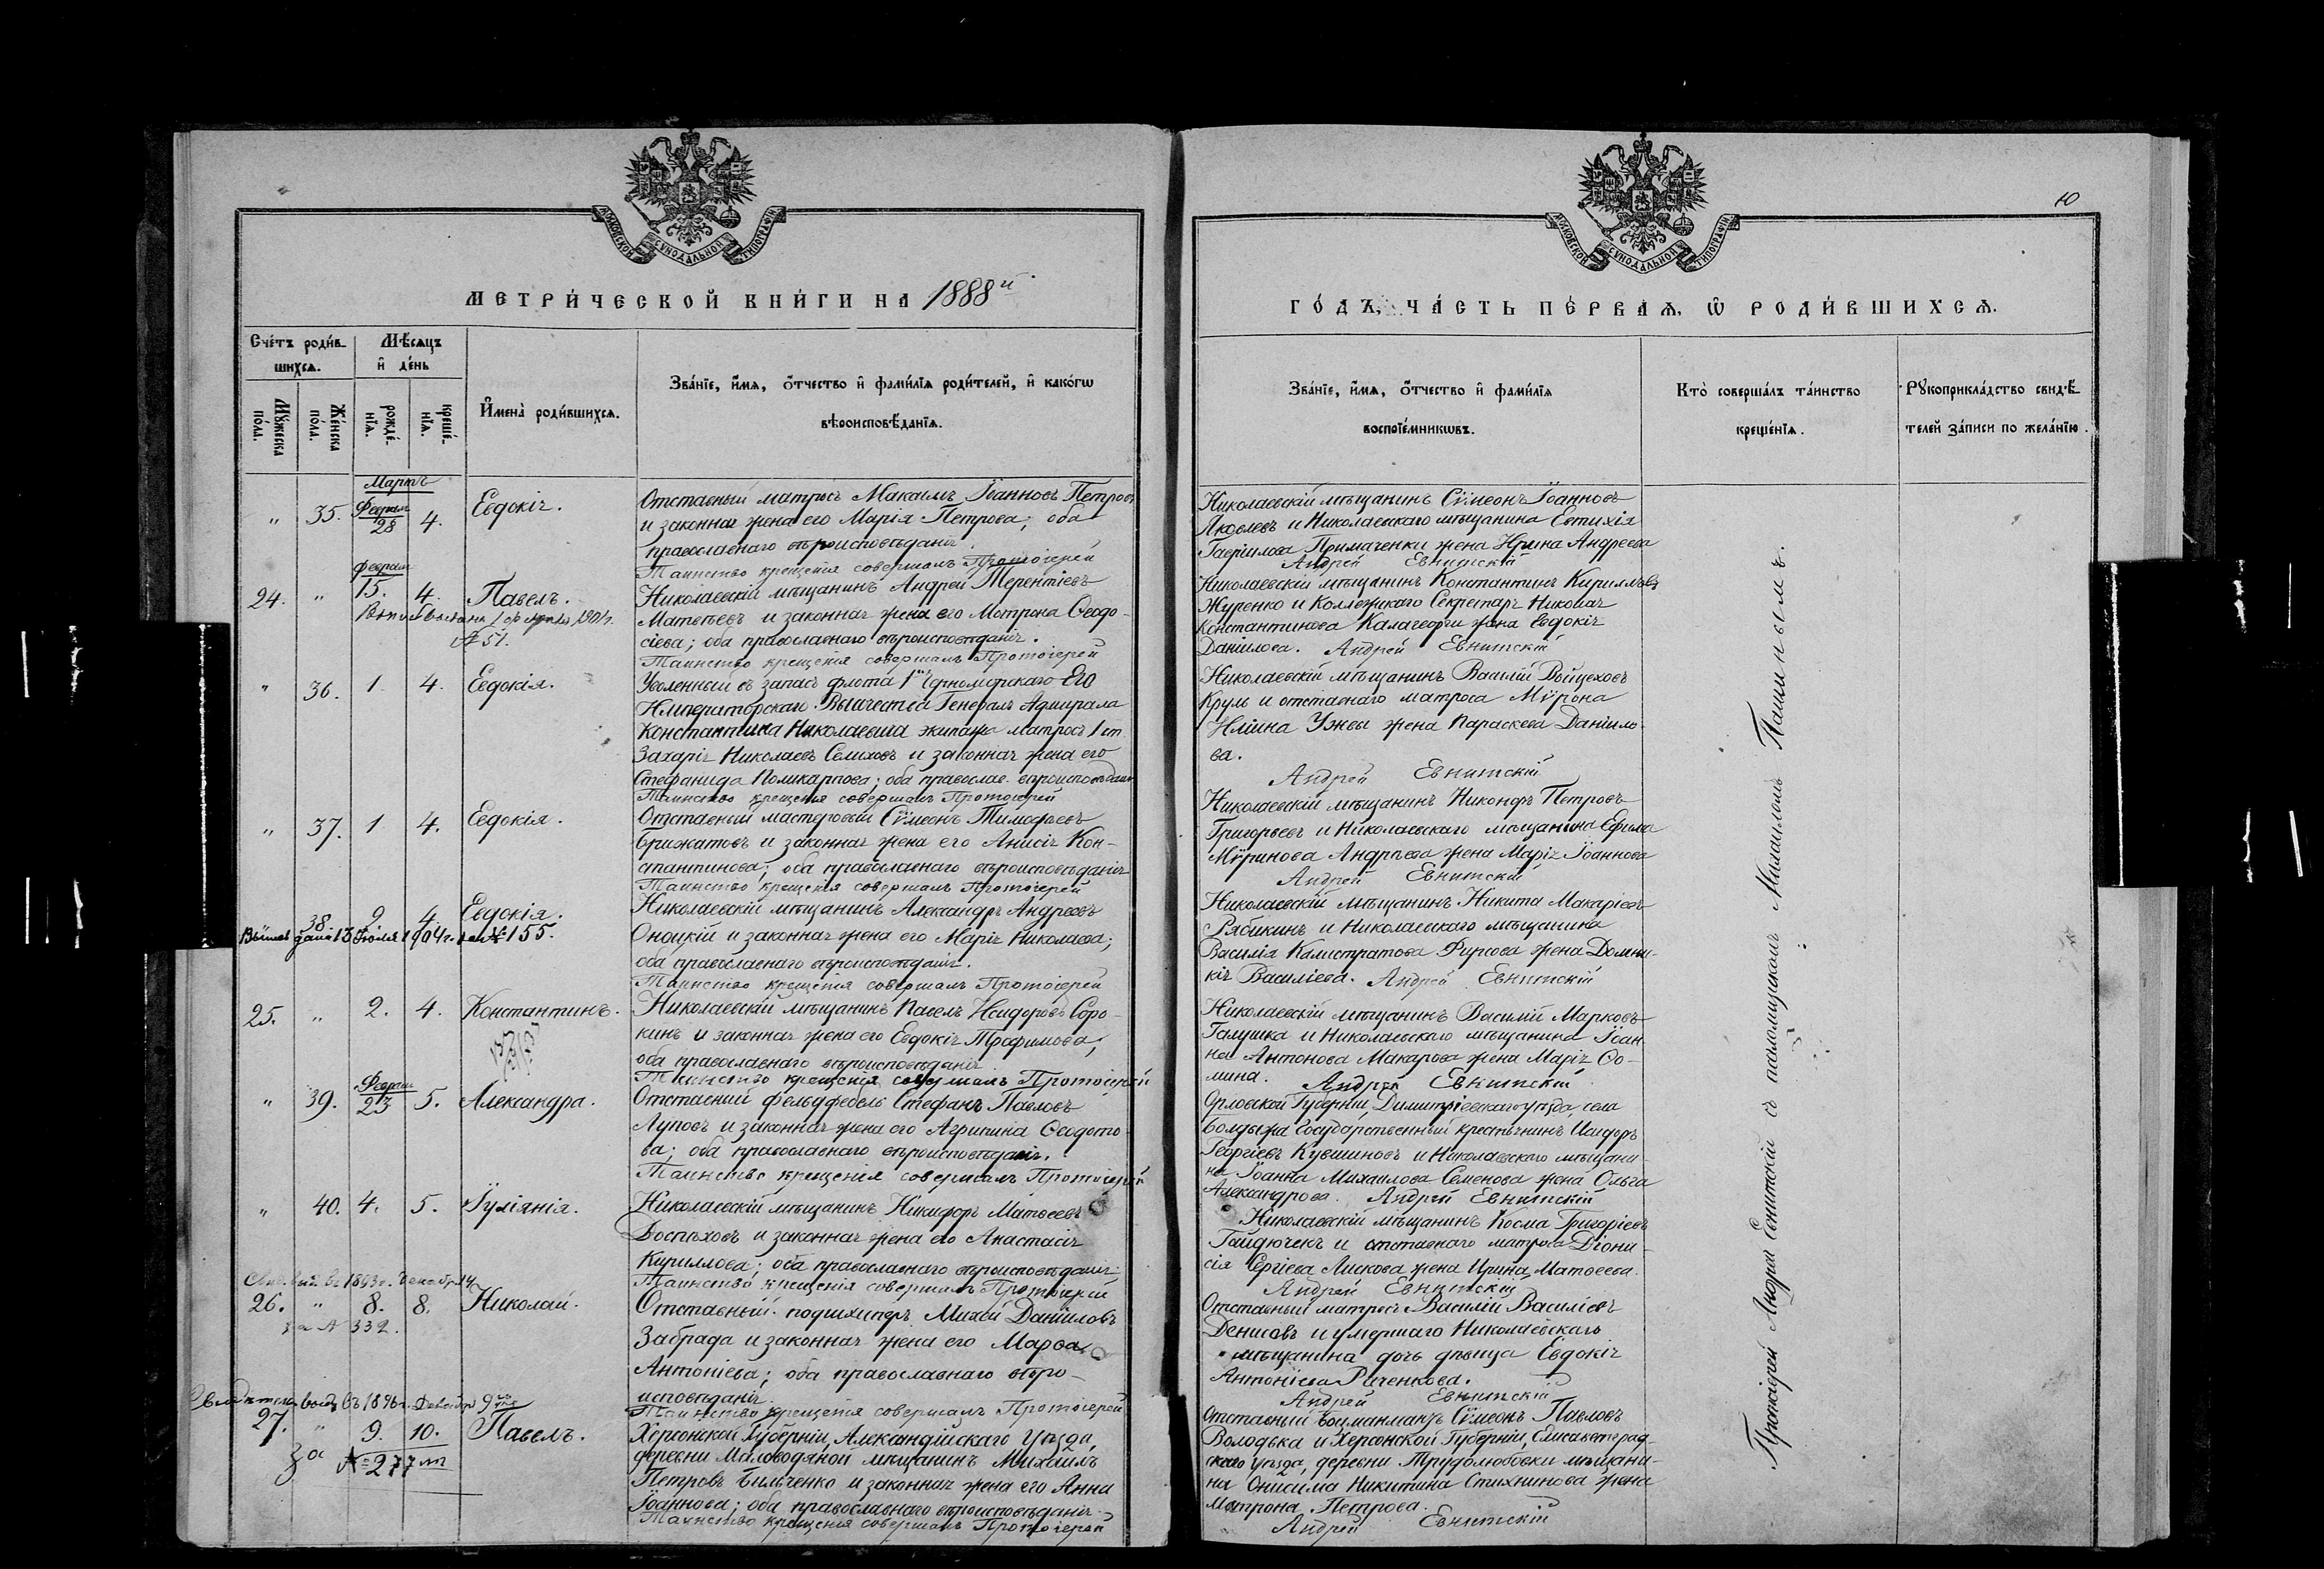 МОСКОВСКОЙ СѴНОДАЛЬНОЙ ТИПОГРАФІИ
МЕТРИ́ЧЕСКОЙ КНИ́ГИ НА 1888й
Сче́тъ роди́в-
шихсѧ.
Мѣ́сѧцъ
и҆ де́нь
Мꙋ́жеска
по́ла.
Же́нска
по́ла.
рожде́-
нїѧ.
креще́-
нїѧ.
И҆мена̀ роди́вшихсѧ.
Зва́нїе, и҆́мѧ, ѻ҆́тчество и҆ фамѝлїѧ роди́телей, и҆ како́гѡ
вѣроисповѣ́данїѧ.
Мартъ
„ 35. Феврал 28 4. Евдокія.
Отставный матросъ Макаимъ Іоанновъ Петровъ
и законная жена его Марія Петрова; оба
православнаго вѣроисповѣданія.
Таинство крещенія совершалъ Протоіерей
Феврал
24. „ 15. 4. Павелъ.
1904г.
№ 51.
Николаевскій мѣщанинъ Андрей Терентіевъ
Матвѣевъ и законная жена его Матрона Ѳеодо-
сіева; оба православнаго вѣроисповѣданія.
Таинство крещенія совершалъ Протоіерей
„ 36. 1. 4. Евдокія.
Уволенный въ запасъ флота 1го Черноморскаго Его
Императорскаго Высочества Генералъ Адмирала
Константина Николаевича экипажа матросъ 1 ст.
Захарія Николаевъ Селиховъ и законная жена его
Стефанида Поликарпова; оба православ. вѣроисповѣданія
Таинство крещенія совершалъ Протоіерей
„ 37. 1 4. Евдокія.
Отставный мастеровой Сѵмеонъ Тимофѣевъ
Брижатовъ и законная жена его Анисія Кон-
стантинова; оба православнаго вѣроисповѣданія
Таинство крещенія совершалъ Протоіерей
38 2 4. Евдокія.
13 Іюля 1904г. за № 155.
Николаевскій мѣщанинъ Александръ Андреевъ
Оноцкій и законная жена его Марія Николаева;
оба православнаго вѣроисповѣданія.
Таинство крещенія совершалъ Протоіерей
25. „ 2. 4. Константинъ.
Николаевскій мѣщанинъ Павелъ Исидоровъ Соро-
кинъ и законная жена его Евдокія Трофимова;
оба православнаго вѣроисповѣданія
Таинство крещенія совершалъ Протоіерей
„ 39. Феврал 23 5. Александра.
Отставной фельдфебель Стефанъ Павловъ
Луповъ и законная жена его Агрипина Ѳеодото-
ва; оба православнаго вѣроисповѣданія.
Таинство крещенія совершалъ Протоіерей
„ 40. 4. 5. Іуліанія.
Николаевскій мѣщанинъ Никифоръ Матѳеевъ
Доспѣховъ и законная жена его Анастасія
Кириллова; оба православнаго вѣроисповѣданія
Таинство крещенія совершалъ Протоіерей
Свид. выд. въ 1893г. Декабря 14
26. „ 8. 8. Николай.
за № 332.
Отставный подшкиперъ Михей Даніиловъ
Забрада и законная жена его Марѳа
Антоніева; оба православнаго вѣро-
исповѣданія
Таинство крещенія совершалъ Протоіерей
въ 1896г. Декабря 9го
27. „ 9. 10. Павелъ.
За № 277
Херсонской Губерніи, Александрійскаго Уѣзда,
деревни Маловодяной мѣщанинъ Михаилъ
Петровъ Бильченко и законная жена его Анна
Іоаннова; оба православнаго вѣроисповѣданія
Таинство крещенія совершалъ Протоіерей
МОСКОВСКОЙ СѴНОДАЛЬНОЙ ТИПОГРАФІИ
10
ГО́ДЪ, ЧА́СТЬ ПЕ́РВАѦ, Ѡ҆ РОДИ́ВШИХСѦ.
Зва́нїе, и҆́мѧ, ѻ҆́тчество и҆ фами́лїѧ
воспрїе́мникѡвъ.
Кто̀ соверша́лъ та́инство
креще́нїѧ.
Рꙋкоприкла́дство свидѣ́-
телей за́писи по жела́нїю.
Николаевскій мѣщанинъ Сѵмеонъ Іоанновъ
Яковлевъ и Николаевскаго мѣщанина Евтихія
Гавріилова Примаченки жена Ирина Андреева
Андрей Евнитскій
Николаевскій мѣщанинъ Константинъ Кирилловъ
Журенко и Коллежскаго Секретаря Николая
Константинова Калагеорги жена Евдокія
Даніилова. Андрей Евнитскій
Николаевскій мѣщанинъ Василій Войцеховъ
Круль и отставнаго матроса Мѵрона
Иліина Ужвы жена Параскева Даніило-
ва.
Андрей Евнитскій
Николаевскій мѣщанинъ Никонъ Петровъ
Григорьевъ и Николаевскаго мѣщанина Ефима
Мѵринова Андрѣева жена Марія Іоаннова
Андрей Евнитскій
Николаевскій мѣщанинъ Никита Макаріевъ
Рябикинъ и Николаевскаго мѣщанина
Василія Калистратова Фирсова жена Домни-
кія Василіева. Андрей Евнитскій
Николаевскій мѣщанинъ Василій Марковъ
Галушка и Николаевскаго мѣщанина Іоан
на Антонова Макарова жена Марія Ѳо-
мина. Андрей Евнитскій
Орловской Губерніи, Димитріевскаго уѣзда, села
Болдыжа Государственный крестьянинъ Исидоръ
Георгіевъ Кувшиновъ и Николаевскаго мѣщани-
на Іоанна Михаилова Семенова жена Ольга
Александрова. Андрей Евнитскій
Николаевскій мѣщанинъ Косма Григоріевъ
Гайдючекъ и отставнаго матроса Діони-
сія Сергіева Лискова жена Ирина Матѳеева.
Андрей Евнитскій
Отставный матросъ Василій Василіевъ
Денисовъ и умершаго Николаевскаго
мѣщанина дочь дѣвица Евдокія
Антоніева Раченкова.
Андрей Евнитскій
Отставный боцманматъ Сѵмеонъ Павловъ
Володька и Херсонской Губерніи, Елисаветград-
скаго уѣзда, деревни Трудолюбовки мѣщани-
на Онисима Никитина Стихнинова жена
Матрона Петрова.
Андрей Евнитскій
Протоіерей Андрей Евнитскій съ псаломщикомъ Михаиломъ Пашинымъ.